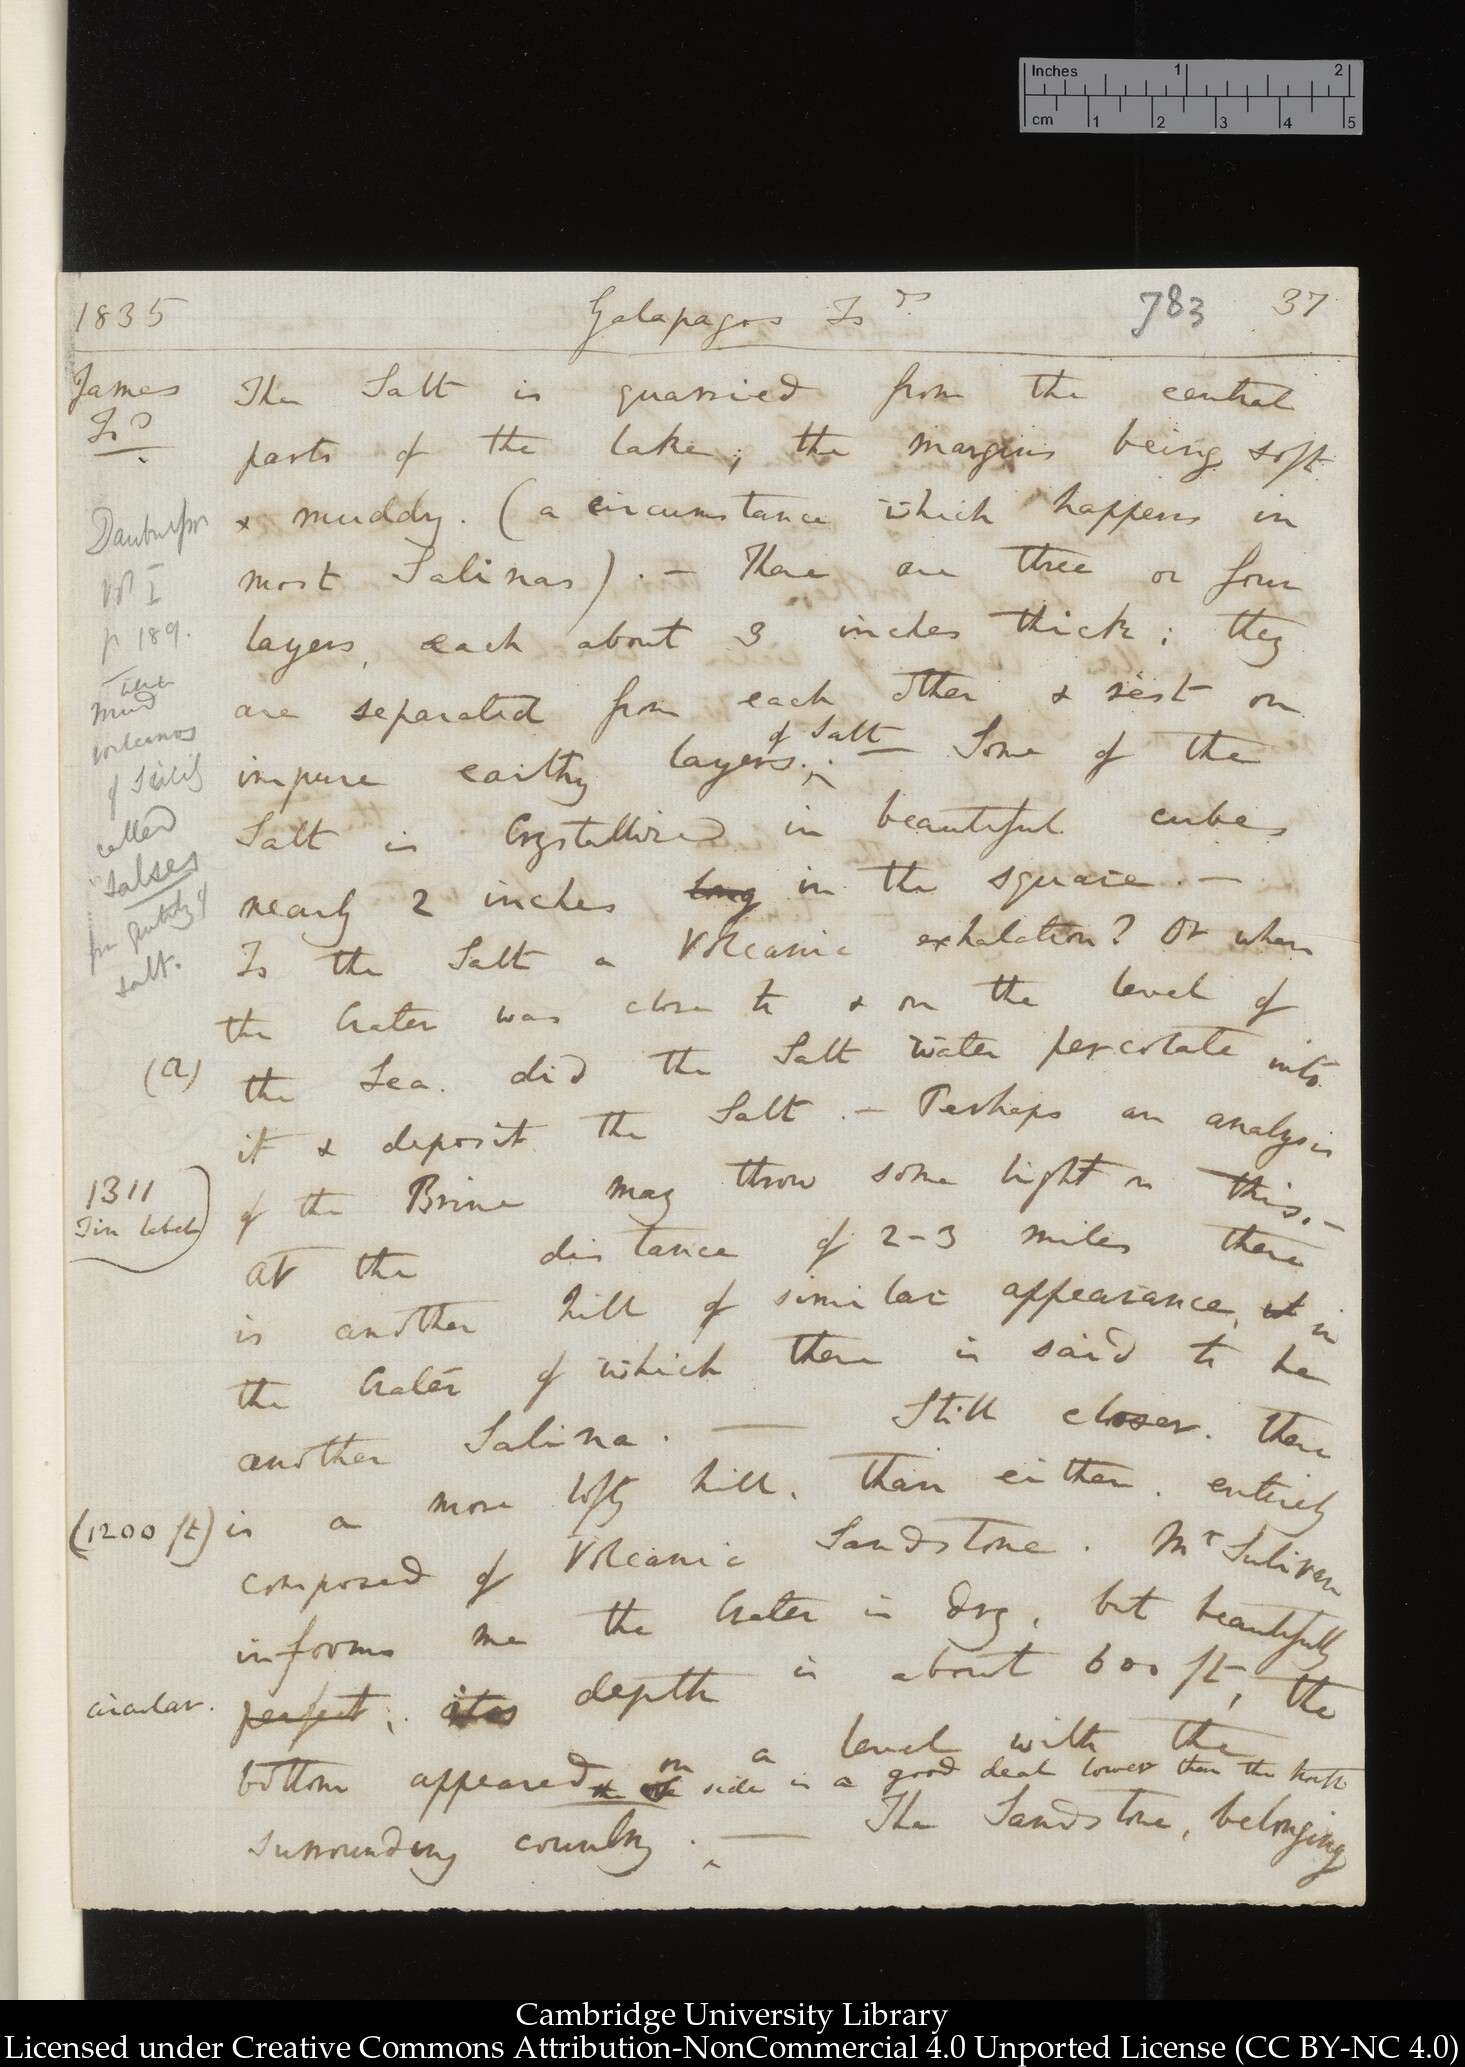 Inches 1 2
cm 1 2 3 4 5
1835 Galapagos Is ds 783 37
James
Isd
The Salt is quarried from the central
parts of the lake; the margins being soft
& muddy. (a circumstance which happens in
most Salinas). — There are three or four
layers, each about 3 inches thick; they
are separated from each other & rest on
of Salt
impure earthy layers. — Some of the
Salt is Crystallized in beautiful cubes
nearly 2 inches long in the square. —
Is the Salt a Volcanic exhalation? Or when
the Crater was close to & on the level of
the Sea. did the Salt water percolate into
it & deposit the Salt. — Perhaps an analysis
of the Brine may throw some light on this. —
At the distance of 2-3 miles there
is another hill of similar appearance, it in
the Crater of which there is said to be
another Salina. — Still closer. there
is a more lofty hill, than either. entirely
composed of Volcanic Sandstone. Mr Sulivan
informs me the Crater is dry, but beautifully
perfect; its depth is about 600 ft, the
bottom appeared on a level with the
side is a good deal lower than the
surrounding country. — The Sandstone, belonging
Daubuisson
vol I
p 189.
mud
volcanos
of Sicily
called
"Salses
salt.
(a)
1311
Tin label
(1200 ft)
circular.
Cambridge University Library
Licensed under Creative Commons Attribution-NonCommercial 4.0 Unported License (CC BY-NC 4.0)